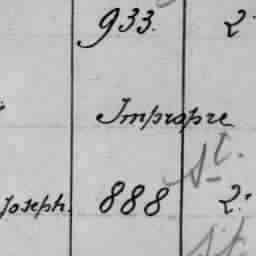 933. 2.
Impropre
St.
Joseph. 888 2.
St.